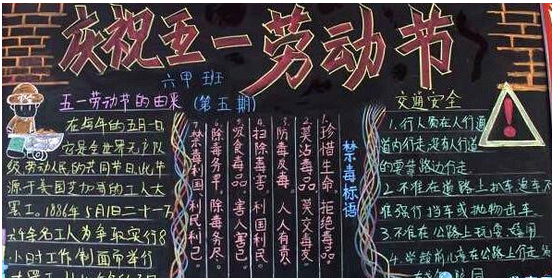 庆祝五一劳动节
六甲班
五一劳动节的由来(第五期)
在每年的五月一日
它是全世界无产阶
级劳动人民的共同节日,此节
源于美国芝加哥的工人大
罢工。1886年5月1日二十一万
6千名工人为争取实行8
小时工作制而举行
禁毒标语
1.珍惜生命 拒绝毒品。
2.莫沾毒品 莫交毒友。
3.防毒反毒 人人有责
4.扫除毒害 利国利民
5.吸食毒品。害人害己。
6.除毒务早 除毒务尽。
禁毒利国 利民利己。
交通安全
1.行人须在人行道
道内行走,没有人行道
的要靠路边行走。
2.不准在道路上扒车追车
准强行挡车或抛物击车。
3.不准在公路上玩耍嬉闹
4.学龄前儿童在公路上行走